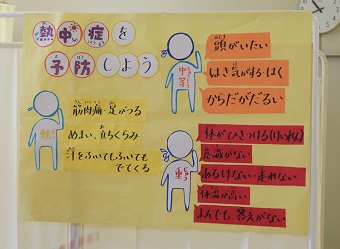 熱中症を
予防しよう
軽
筋肉痛・足がつる
めまい、立ちくらみ
汗をふいてもふいても
でてくる
中等
頭がいたい
はき気がする・はく
からだがだるい
重
体がひきつける(けいれん)
意識がない
あるけない・走れない
体温が高い
よんでも答えがない